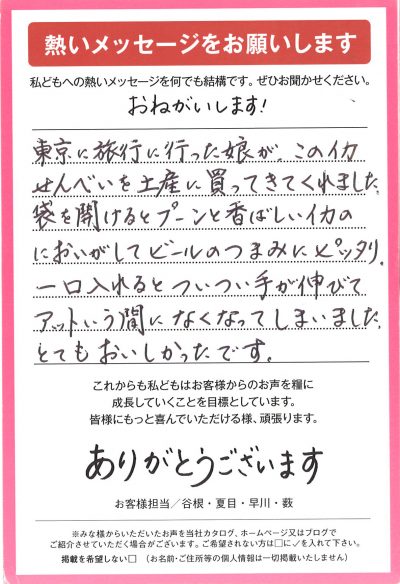 熱いメッセージをお願いします
私どもへの熱いメッセージを何でも結構です。ぜひお聞かせください。
おねがいします!
東京に旅行に行った娘が、このイカ
せんべいを土産に買ってきてくれました。
袋を開けるとプーンと香ばしいイカの
においがしてビールのつまみにピッタリ。
一口入れるとついつい手が伸びて
アットいう間になくなってしまいました。
とてもおいしかったです。
これからも私どもはお客様からのお声を糧に
成長していくことを目標としています。
皆様にもっと喜んでいただける様、頑張ります。
ありがとうございます
お客様担当／谷根・夏目・早川・薮
※みな様からいただいたお声を当社カタログ、ホームページ又はブログで
ご紹介させていただく場合がございます。ご希望されない方は□に✓を入れて下さい。
掲載を希望しない□ （お名前・ご住所等の個人情報は一切掲載いたしません）